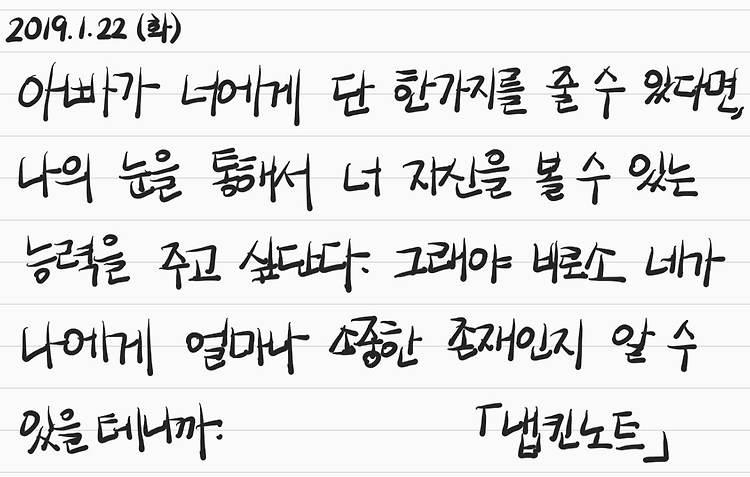 2019.1.22 (화)
아빠가 너에게 단 한가지를 줄 수 있다면,
나의 눈을 통해서 너 자신을 볼 수 있는
능력을 주고 싶단다. 그래야 비로소 네가
나에게 얼마나 소중한 존재인지 알 수
있을 테니까. 「냅킨노트」